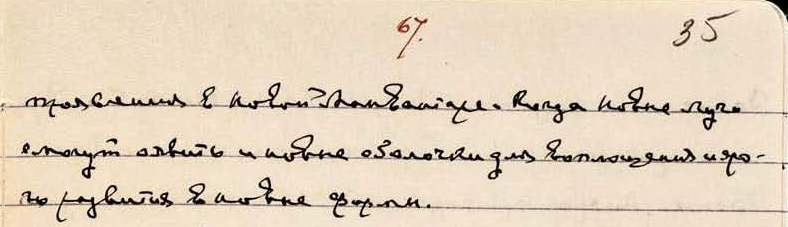 67. 35
проявления в новой Манвантаре. Когда новые лучи
смогут явить и новые оболочки для воплощения и яро-
го развития в новые формы.